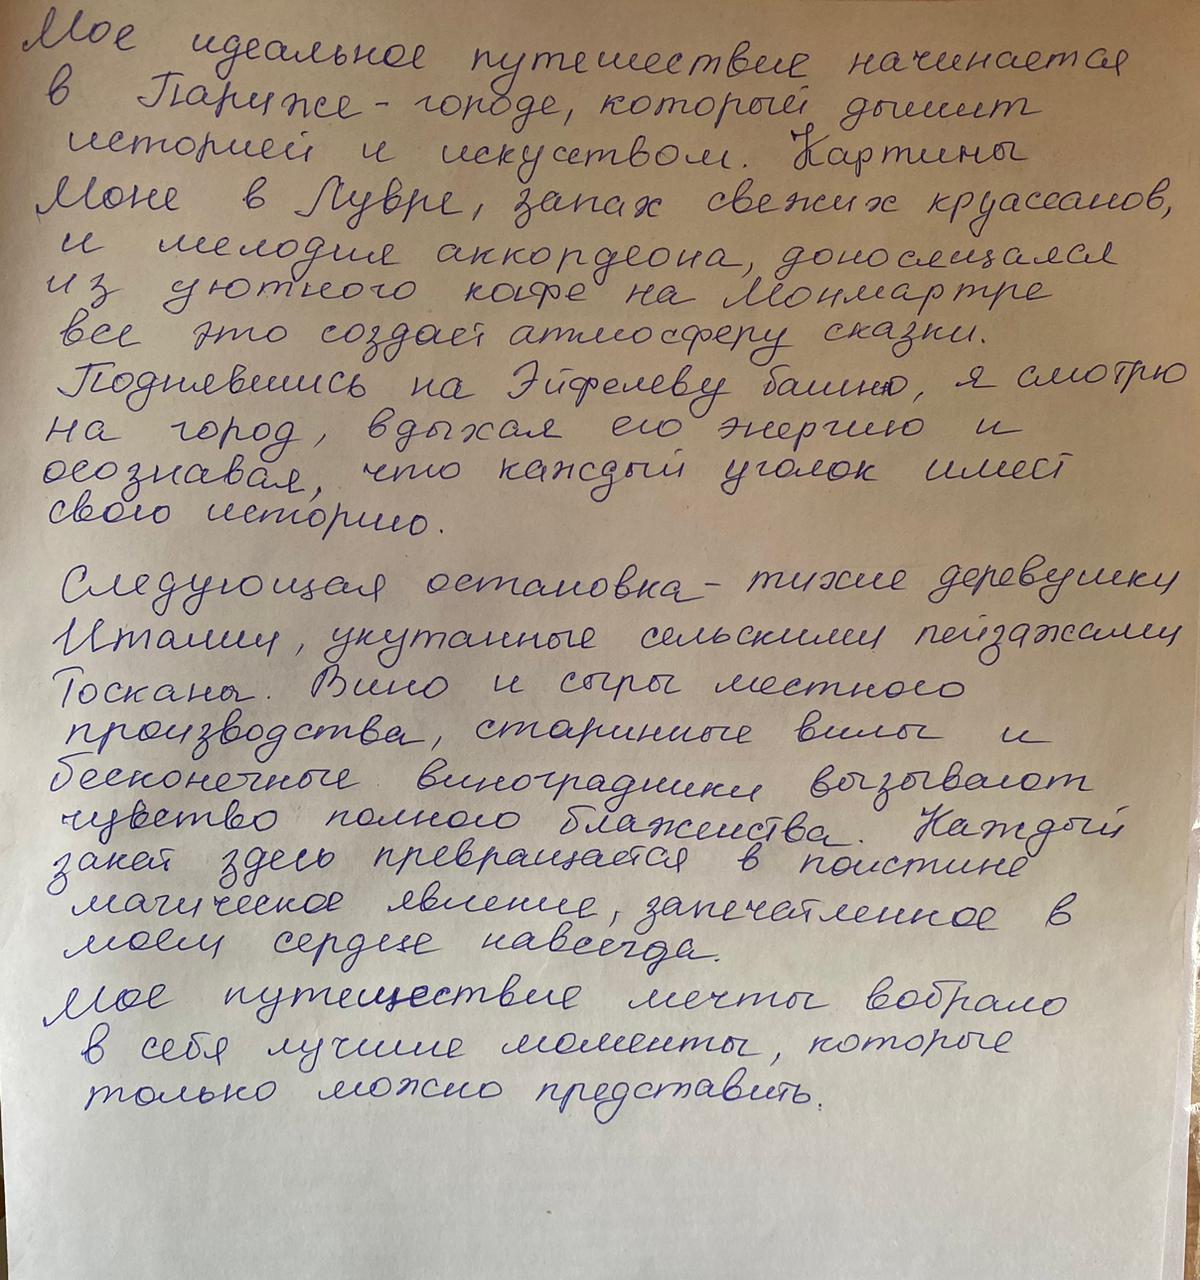 Мое идеальное путешествие начинается
в Париже - городе, который дышит
историей и искусством. Картины
Моне в Лувре, запах свежих круассанов,
и мелодия аккордеона, доносящаяся
из уютного кафе на Монмартре
все это создает атмосферу сказки.
Поднявшись на Эйфелеву башню, я смотрю
на город, вдыхая его энергию и
осознавая, что каждый уголок имеет
свою историю.
Следующая остановка - тихие деревушки
Италии, укутанные сельскими пейзажами
Тосканы. Вино и сыры местного
производства, старинные вилы и
бесконечные виноградники вызывают
чувство полного блаженства. Каждый
закат здесь превращается в поистине
магическое явление, запечатленное в
моем сердце навсегда.
Мое путешествие мечты вобрало
в себя лучшие моменты, которые
только можно представить.